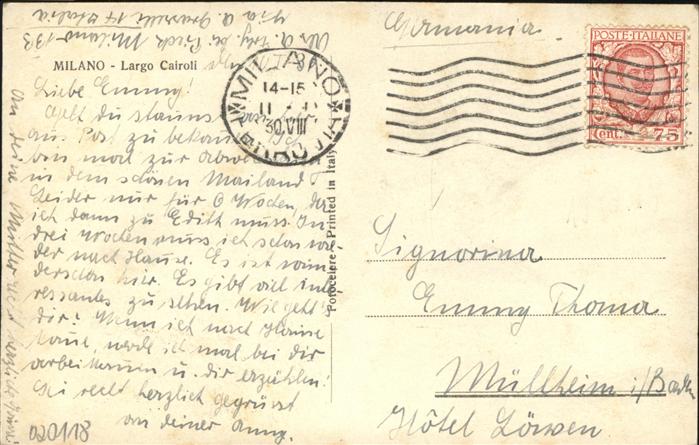 Germania.
POSTE ITALIANE
Cent. 75
MILANO - Largo Cairoli
MILANO
14-15
30.VIII
Liebe Emmy!
Gelt du staunst
aus. Post zu bekom
bin mal zur Abwechs
in dem schönen Mailand
Leider nur für 6 Wochen, da
ich dann zu Edith muss. In
drei Wochen muss ich schon wie
der nach Hause. Es ist wun
derschön hier. Es gibt viel inte
ressantes zu sehen. Wie geht's
dir? Wenn ich nach Hause
komme, werde ich mal bei dir
vorbeikommen u. dir erzählen!
Sei recht herzlich gegrüsst
von deiner Anny.
An deine Mutter
Printed in Italy
Signorina
Emmy Thoma
Müllheim i/Baden
Hôtel Löwen
020118